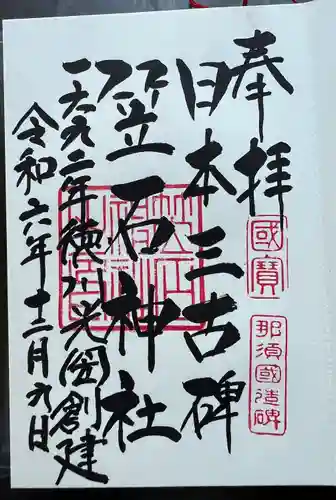 奉拝
國寶
那須國造碑
日本三古碑
笠石神社
一六九二年徳川光圀創建
令和六年十二月九日